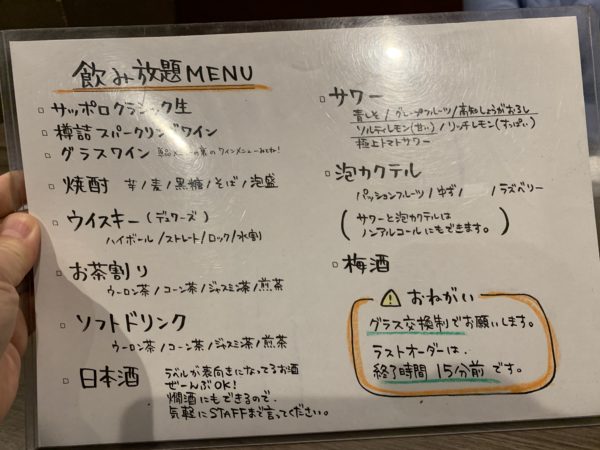 飲み放題MENU
サッポロクラシック生
樽詰スパークリングワイン
グラスワイン ワインメニューみてね!
焼酎 芋/麦/黒糖/そば/泡盛
ウイスキー(デュワーズ)
ハイボール/ストレート/ロック/水割
お茶割り
ウーロン茶/コーン茶/ジャスミン茶/煎茶
ソフトドリンク
ウーロン茶/コーン茶/ジャスミン茶/煎茶
日本酒 ラベルが表向きになってるお酒
ぜーんぶOK!
燗酒にもできるので、
気軽にSTAFFまで言ってください。
サワー
青しそ/グレープフルーツ/高知しょうがおろし
ソルティレモン(甘い)/リッチレモン(すっぱい)
極上トマトサワー
泡カクテル
パッションフルーツ/ゆず/ /ラズベリー
(サワーと泡カクテルは
ノンアルコールにもできます。)
梅酒
おねがい
グラス交換制でお願いします。
ラストオーダーは、
終了時間15分前です。